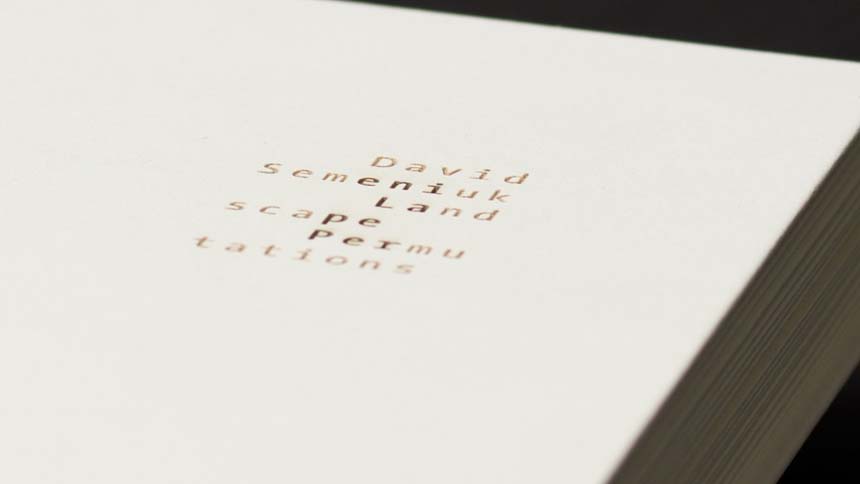 David
Semeniuk
Land
scape
Permu
tations